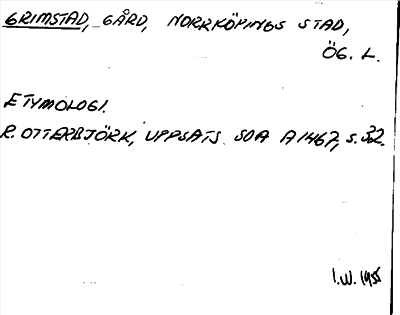 GRIMSTAD, GÅRD, NORRKÖPINGS STAD,
ÖG. L.
ETYMOLOGI.
R. OTTERBJÖRK, UPPSATS SOA A1467, S. 32.
I.W. 1955